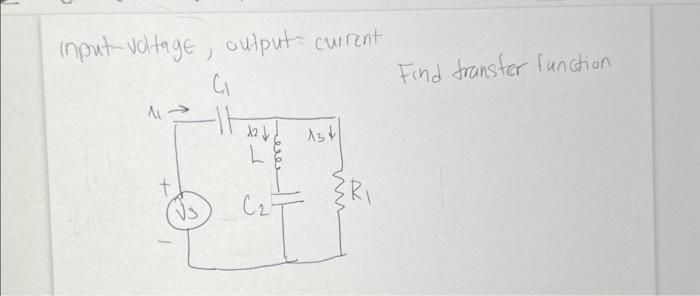 input-voltage, output= current
Find transfer function
C1
i1 →
i2 ↓
i3 ↓
L
+
Vs
-
C2
R1